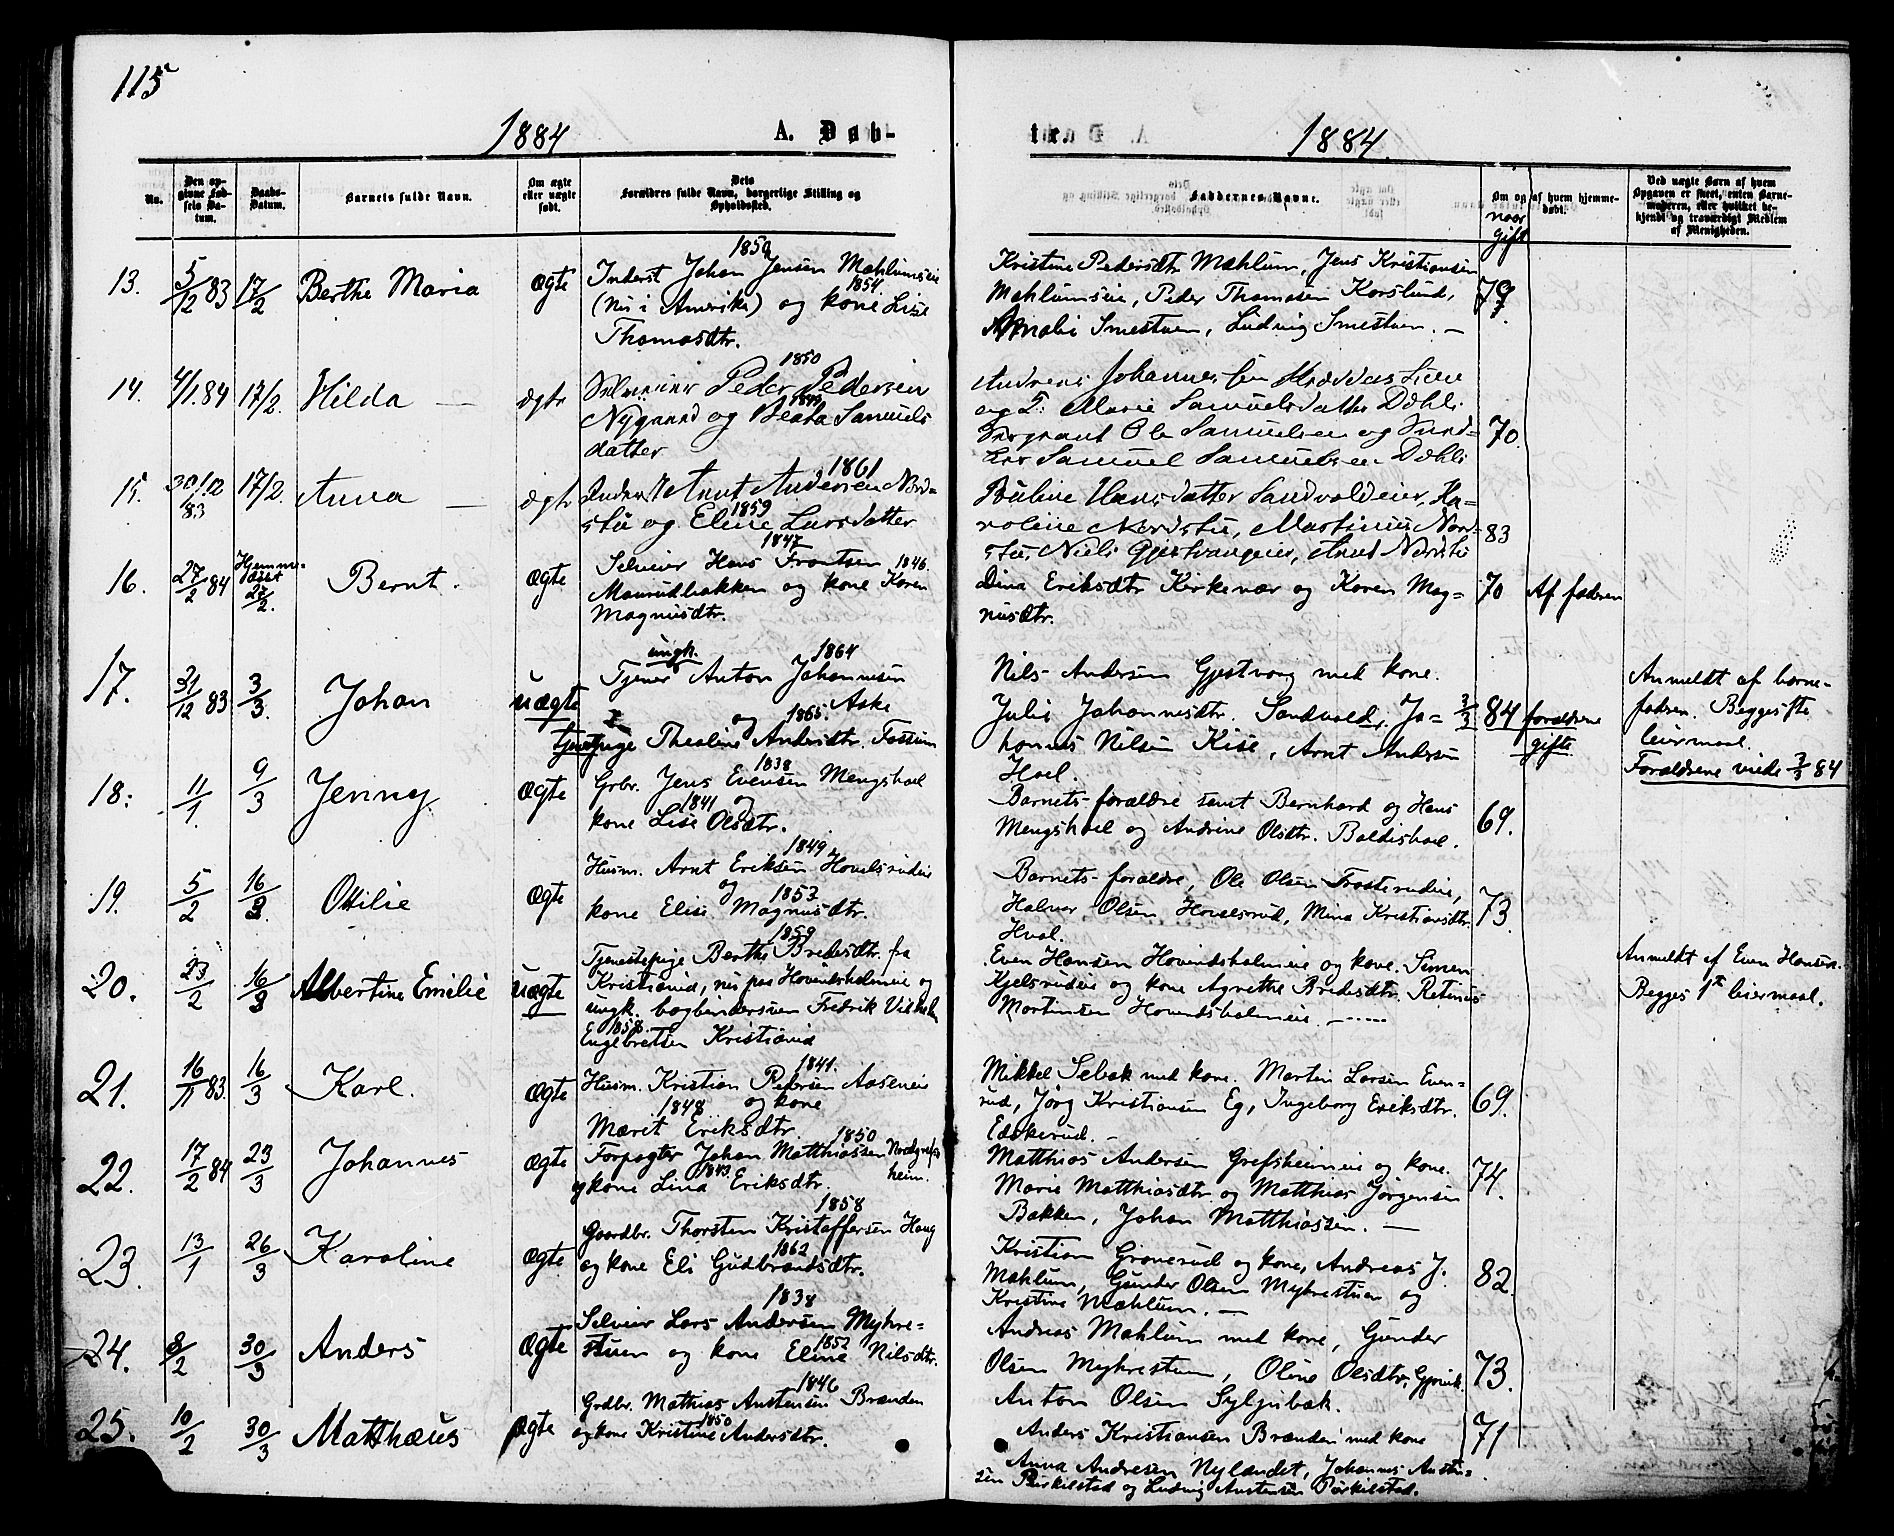 115
1884 A. Døb-
No.
Den op-
givne Fød-
sels Da-
tum.
Daabs-
Datum.
Barnets fulde Navn.
Om ægte
eller uægte
født.
Dets
Forældres fulde Navn, borgerlige Stilling og
Opholdssted.
13. 5/12 83 17/2 Berthe Maria Ægte
1859
Inderst Johan Jensen Mæhlumseie
1854
(nu i Amerika) og kone Lise
Thomasdtr.
14. 4/1.84 17/2. Hilda — ægte
1850
Selveier Peder Pedersen
Nygaard og Beata Samuels
datter
15. 30/12 83 17/2. Anna — ægte
1861
Arnt Andersen Nord-
1859
stu og Eline Larsdatter
16. 27/2 84 Hjemme-
døbt
27/2. Bernt. Ægte
1847
Selveier Hans Frantsen 1846.
Maurudbakken og kone Karen
Magnusdtr.
17. 31/12 83 3/3. Johan uægte
ungk. 1864
Tjener Anton Johannesen
Aske
og 1865.
tjenstpige Thealine Andersdtr. Fossum
18. 11/1. 9/3 Jenny. Ægte
1838
Grbr. Jens Evensen Mengshoel
1841 og
kone Lise Olsdtr.
19. 5/2 16/3. Ottilie Ægte
1849
Husm. Arnt Eriksen Hovelsrudeie
og 1853
kone Elise Magnusdtr.
20. 23/2 16/3 Albertine Emilie uægte
1859
Tjenestepige Berthe Bredesdtr. fra
Kristiania, nu paa Hovindsholmeie og
ungk. bogbindersven Fredrik Vilhelm
1858.
Engebretsen Kristiania
21. 16/11 83. 16/3 Karl. Ægte
1841.
Husm. Kristian Pedersen Aaseneie
1848 og kone
Marit Eriksdtr.
22. 17/2 84 23/3 Johannes Ægte
1850
Forpagter Johan Matthiassen Nordgrefs
heim.
1843
og kone Lina Eriksdtr.
23. 13/1 26/3 Karoline Ægte
1858
Gaardbr. Thorsten Kristoffersen Haug
1862
og kone Eli Gudbrandsdtr.
24. 8/2 30/3 Anders Ægte
1838
Selveier Lars Andersen Myhre-
1852
stuen og kone Eline Nilsdtr.
25. 10/2 30/3 Matthæus Ægte
1846
Grdbr. Mathias Austensen Brænden
1850
og kone Kristine Andersdtr.
tr. 1884.
Faddernes Navne.
Om og af hvem hjemme-
døbt.
naar
gift
Ved uægte Børn af hvem
Opgaven er skeet, enten Barne-
moderen, eller hvilket be-
kjendt og troværdigt Medlem
af Menigheden.
Kristine Pedersdtr Mæhlum, Jens Kristiansen
Mæhlumseie, Peder Thomasen Korslund, 79.
Amalie Smestuen, Ludvig Smestuen. —
Andreas Johannesen
og Marie Samuelsdatter Dæhli
Sergeant Ole Samuelsen og 70.
Samuel Samuelsen Dæhli
Pauline Hansdatter Sandvoldeie, Ka-
roline Nordstu, Martinus Nord- 83
stu, Nils Gjestvangeie, Arnt Nordstu
Dina Eriksdtr Kirkenær og Karen Mag- 70 Af faderen
nusdtr.
Nils Andersen Gjestvang med kone.
Julie Johannesdtr. Sandvold, Jo- 3/3 84 forældrene
hannes Nilsen Kise, Arnt Andersen gifte
Hoel.
Anmeldt af barne-
faderen. Begges 1ste
leiermaal.
Forældrene viede 3/3 84
Barnets forældre samt Bernhard og Hans
Mengshoel og Andrine Olsdtr. Baldishoel. 69.
Barnets forældre, Ole Olsen Frosterudeie,
Halvor Olsen Hovelsrud, Mina Kristiansdtr. 73.
Hval.
Even Hansen Hovindsholmeie og kone. Simen
Kjelsrudeie og kone Agnethe Bredesdtr. Retinus
Mortinsen Hovindsholmeie. —
Anmeldt af Even Hansen.
Begges 1ste leiermaal.
Mikkel Sebak med kone. Martin Larsen Even-
rud, Jørg Kristiansen Eg, Ingeborg Eriksdtr. 69.
Edskerud. —
Matthias Andersen Grefsheimeie og kone. 74.
Marie Matthiasdtr og Matthias Jørgensen
Bakken, Johan Matthiassen. —
Kristian Granerud og kone, Andreas J.
Mæhlum, Gunder Olsen Myhrestuen og 82.
Kristine Mæhlum. —
Andreas Mæhlum med kone, Gunder
Olsen Myhrestuen, Oline Olsdtr. Gjøvik. 73.
Anton Olsen Syljubak.
Anders Kristiansen Brænden med kone 71
Anna Andresen Nylændet, Johannes Austen-
sen Pirkilstad og Ludvig Austensen Pirkilstad.